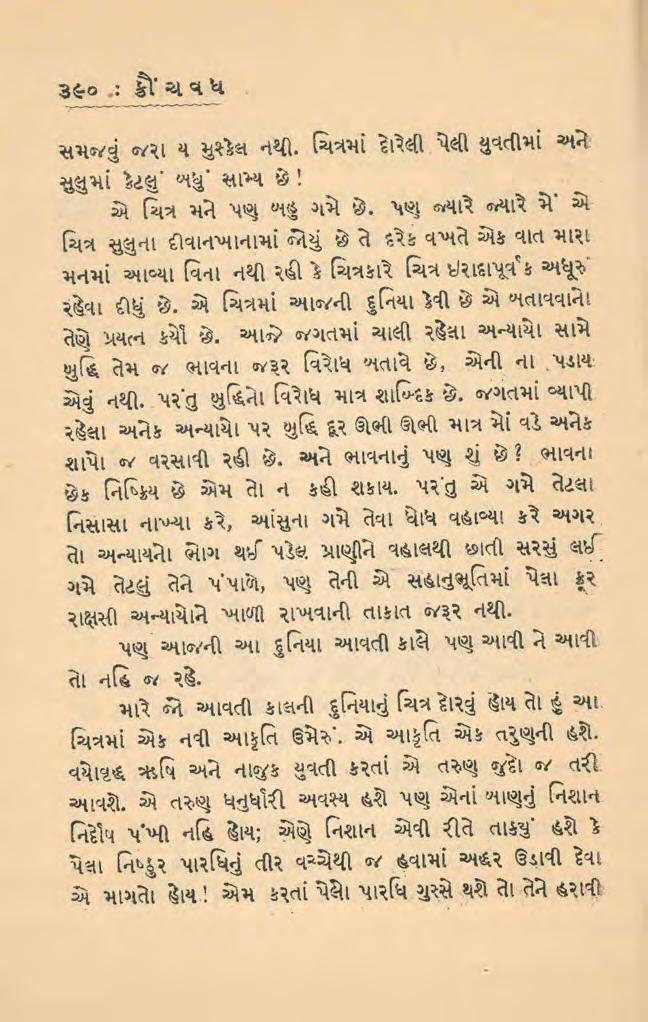 ૩૯૦ : ક્રૌંચવધ
સમજવું જરા ય મુશ્કેલ નથી. ચિત્રમાં દોરેલી પેલી યુવતીમાં અને
સુલુમાં કેટલું બધું સામ્ય છે!
એ ચિત્ર મને પણ બહુ ગમે છે. પણ જ્યારે જ્યારે મેં એ
ચિત્ર સુલુના દીવાનખાનામાં જોયું છે તે દરેક વખતે એક વાત મારા
મનમાં આવ્યા વિના નથી રહી કે ચિત્રકારે ચિત્ર ઇરાદાપૂર્વક અધૂરું
રહેવા દીધું છે. એ ચિત્રમાં આજની દુનિયા કેવી છે એ બતાવવાનો
તેણે પ્રયત્ન કર્યો છે. આજે જગતમાં ચાલી રહેલા અન્યાયો સામે
બુદ્ધિ તેમ જ ભાવના જરૂર વિરોધ બતાવે છે, એની ના પડાય
એવું નથી. પરંતુ બુદ્ધિનો વિરોધ માત્ર શાબ્દિક છે. જગતમાં વ્યાપી
રહેલા અનેક અન્યાયો પર બુદ્ધિ દૂર ઊભી ઊભી માત્ર મોં વડે અનેક
શાપો જ વરસાવી રહી છે. અને ભાવનાનું પણ શું છે? ભાવના
છેક નિષ્ક્રિય છે એમ તો ન કહી શકાય. પરંતુ એ ગમે તેટલા
નિસાસા નાખ્યા કરે, આંસુના ગમે તેવા ધોધ વહાવ્યા કરે અગર
તો અન્યાયનો ભોગ થઈ પડેલ પ્રાણીને વહાલથી છાતી સરસું લઈ
ગમે તેટલું તેને પંપાળે, પણ તેની એ સહાનુભૂતિમાં પેલા ક્રૂર
રાક્ષસી અન્યાયોને ખાળી રાખવાની તાકાત જરૂર નથી.
પણ આજની આ દુનિયા આવતી કાલે પણ આવી ને આવી
તો નહિ જ રહે.
મારે જો આવતી કાલની દુનિયાનું ચિત્ર દોરવું હોય તો હું આ
ચિત્રમાં એક નવી આકૃતિ ઉમેરું. એ આકૃતિ એક તરુણની હશે.
વયોવૃદ્ધ ઋષિ અને નાજુક યુવતી કરતાં એ તરુણ જુદો જ તરી
આવશે. એ તરુણ ધનુર્ધારી અવશ્ય હશે પણ એનાં બાણનું નિશાન
નિર્દોષ પંખી નહિ હોય; એણે નિશાન એવી રીતે તાક્યું હશે કે
પેલા નિષ્ઠુર પારધિનું તીર વચ્ચેથી જ હવામાં અદ્ધર ઉડાવી દેવા
એ માગતો હોય! એમ કરતાં પેલો પારધિ ગુસ્સે થશે તો તેને હરાવી